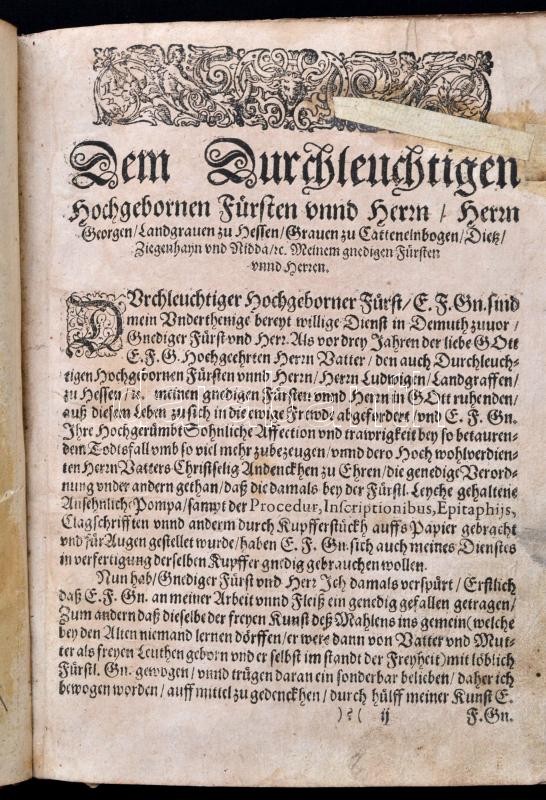 Dem Durchleuchtigen
Hochgebornen Fürsten vnnd Herrn / Herrn
Georgen / Landgrauen zu Hessen / Grauen zu Cattenelnbogen / Dietz /
Ziegenhayn vnd Nidda / ꝛc. Meinem gnedigen Fürsten
vnnd Herren.
DVrchleuchtiger Hochgeborner Fürst / E. F. Gn. sind
mein Vnderthenige bereyt willige Dienst in Demuth zuuor /
Gnediger Fürst vnd Herr. Als vor drey Jahren der liebe GOtt
E. F. G. Hochgeehrten Herrn Vatter / den auch Durchleuch-
tigen Hochgebornen Fürsten vnnd Herrn / Herrn Ludwigen / Landgraffen /
zu Hessen / ꝛc. meinen gnedigen Fürsten vnnd Herrn in GOtt ruhenden /
auß diesem Leben zu sich in die ewige Frewde abgefordert / vnd E. F. Gn.
Ihre Hochgerümbt Sohnliche Affection vnd trawrigkeit bey so betauren-
dem Todtsfall vmb so viel mehr zubezeugen / vnnd dero Hoch wohlverdien-
ten Herrn Vatters Christselig Andenckhen zu Ehren / die genedige Verord-
nung vnder andern gethan / daß die damals bey der Fürstl. Leyche gehaltene
Ansehnlich Pompa / sampt der Procedur, Inscriptionibus, Epitaphijs,
Clagschrifften vnnd anderm durch Kupfferstückh auffs Papier gebracht
vnd für Augen gestellet wurde / haben E. F. Gn. sich auch meines Dienstes
in verfertigung derselben Kupffer gnedig gebrauchen wollen.
Nun hab / Gnediger Fürst vnd Herr Ich damals verspürt / Erstlich
daß E. F. Gn. an meiner Arbeit vnnd Fleiß ein genedig gefallen getragen /
Zum andern daß dieselbe der freyen Kunst deß Mahlens ins gemein (welche
bey den Alten niemand lernen dörffen / er were dann von Vatter vnd Mut-
ter als freyen Leuthen geborn vnd er selbst im standt der Freyheit) mit löblich
Fürstl. Gn. gewogen / vnnd trügen daran ein sonderbar belieben / daher ich
bewogen worden / auff mittel zu gedenckhen / durch hülff meiner Kunst E.
):( ij F. Gn.